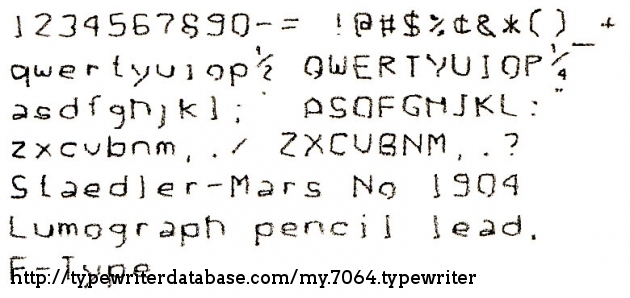 1234567890-= !@#$%¢&*()_+
qwertyuiop½ QWERTYUIOP¼
asdfghjkl;' ASDFGHJKL:"
zxcvbnm,./ ZXCVBNM,.?
Staedler-Mars No 1904
Lumograph pencil lead.
E-Type
http://typewriterdatabase.com/my.7064.typewriter